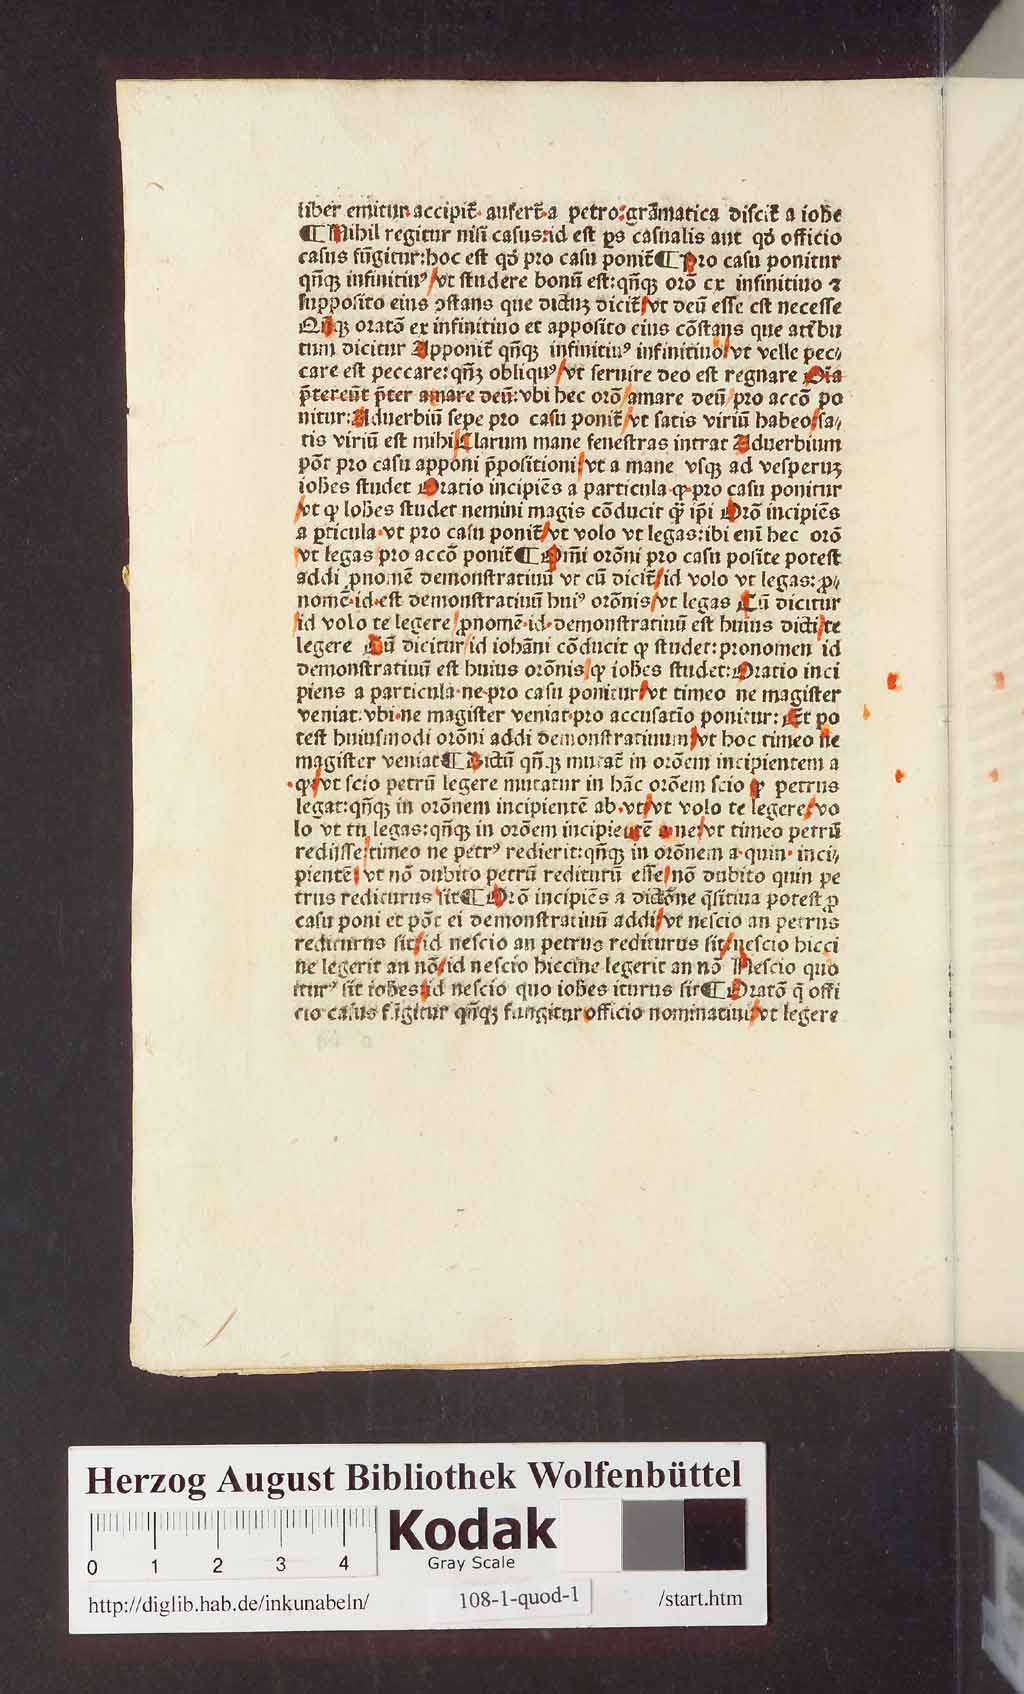 liber emitur·accipit᷑·aufert᷑·a petro:grãmatica discit᷑ a iohe
¶ Nihil regitur nisi casus:id est ps casualis aut qđ officio
casus fũgitur:hoc est qđ pro casu ponit᷑ ¶ Pro casu ponitur
qñqꝫ infinitiuꝰ/vt studere bonũ est:qñqꝫ orõ ex infinitiuo ⁊
supposito eius ꝯstans que dictuꝫ dicit᷑/vt deũ esse est necesse
Qñqꝫ oratõ ex infinitiuo et apposito eius cõstans que attribu
tum dicitur Apponit᷑ qñqꝫ infinitiuꝰ infinitiuo/vt velle pec⸗
care est peccare:qñꝫ obliquꝰ/vt seruire deo est regnare Oĩa
p̃tereũt p̃ter amare deũ:vbi hec orõ/amare deũ/pro accõ po
nitur:Aduerbiũ sepe pro casu ponit᷑/vt satis viriũ habeo/sa⸗
tis viriũ est mihi/Clarum mane fenestras intrat Aduerbium
põt pro casu apponi p̃positioni/vt a mane vsqꝫ ad vesperuꝫ
iohes studet Oratio incipiẽs a particula·ꝙ·pro casu ponitur
/vt ꝙ Iohes studet nemini magis cõducit ꝙ̃ ip̃i Orõ incipiẽs
a pticula·vt pro casu ponit᷑/vt volo vt legas:ibi eni hec orõ
/vt legas/pro accõ ponit᷑ ¶ Omi orõni pro casu posite potest
addi ꝓnomẽ demonstratiuũ vt cũ dicit᷑/id volo vt legas:ꝓ⸗
nomẽ·id·est demonstratiuũ huiꝰ orõnis/vt legas Cũ dicitur
/id volo te legere/ꝓnomẽ·id·demonstratiuũ est huius dicti/te
legere Cũ dicitur/id iohãni cõducit ꝙ studet:pronomen id
demonstratiuũ est huius orõnis/ꝙ iohes studet:Oratio inci
piens a particula·ne·pro casu ponitur/vt timeo ne magister
veniat:vbi·ne magister veniat·pro accusatio ponitur:Et po
test huiusmodi orõni addi demonstratiuum/vt hoc timeo ne
magister veniat ¶ Dictũ qñqꝫ mutat᷑ in orõem incipientem a
·ꝙ/vt scio petrũ legere mutatur in hãc orõem scio ꝙ petrus
legat:qñqꝫ in orõnem incipientẽ ab·vt/vt volo te legere/vo
lo vt tu legas:qñqꝫ in orõem incipientẽ a ne/vt timeo petrũ
redijsse/timeo ne petrꝰ redierit:qñqꝫ in orõnem a·quin·inci⸗
pientẽ/vt nõ dubito petrũ rediturũ esse/nõ dubito quin pe
trus rediturus sit ¶ Orõ incipiẽs a dictõne q̃sitiua potest ꝓ
casu poni et põt ei demonstratiuũ addi/vt nescio an petrus
rediturus sit/id nescio an petrus rediturus sit/nescio hicci
ne legerit an nõ/id nescio hiccine legerit an nõ Nescio quo
iturꝰ sit iohes/id nescio quo iohes iturus sit ¶ Oratõ q̃ offi
cio casus fũgitur qñqꝫ fungitur officio nominatiui/vt legere
Herzog August Bibliothek Wolfenbüttel
0 1 2 3 4 Kodak
Gray Scale
http://diglib.hab.de/inkunabeln/ 108-1-quod-1 /start.htm